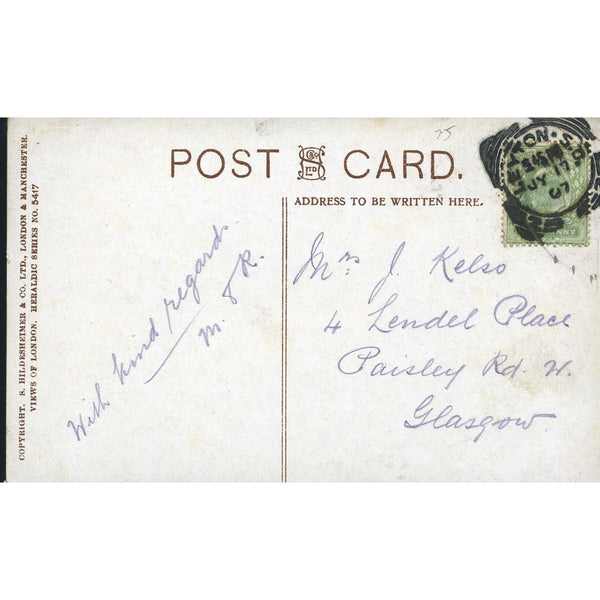 25
POST CARD.
S & Co LTD
ADDRESS TO BE WRITTEN HERE.
COPYRIGHT. S. HILDESHEIMER & CO. LTD., LONDON & MANCHESTER.
VIEWS OF LONDON. HERALDIC SERIES NO. 5417
With kind regards.
M. & K.
Mrs J. Kelso
4 Lendel Place
Paisley Rd. W.
Glasgow.
JY 17
07